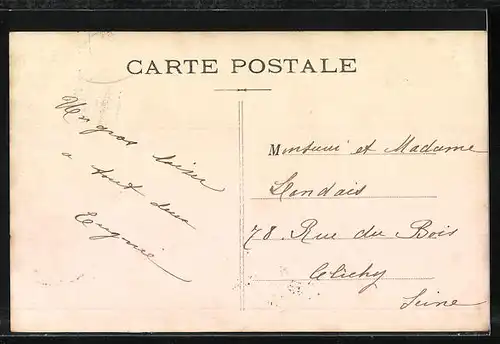 CARTE POSTALE
Un gros baiser
a tout deux
Eugenie
Monsieur et Madame
Landais
78. Rue du Bois
Clichy
Seine